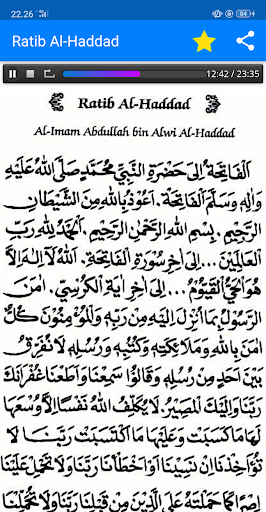 22.26
Ratib Al-Haddad
12:42 / 23:35
Ratib Al-Haddad
Al-Imam Abdullah bin Alwi Al-Haddad
اَلْفَاتِحَةُ إِلَى حَضْرَةِ النَّبِيِّ مُحَمَّدٍ صَلَّى اللهُ عَلَيْهِ
وَاٰلِهِ وَسَلَّمَ اَلْفَاتِحَةُ. اَعُوْذُ بِاللهِ مِنَ الشَّيْطَانِ
الرَّجِيْمِ. بِسْمِ اللهِ الرَّحْمٰنِ الرَّحِيْمِ. اَلْحَمْدُ لِلّٰهِ رَبِّ
الْعَالَمِيْنَ... إِلَى اٰخِرِ سُوْرَةِ الْفَاتِحَةِ. اَللهُ لَا اِلٰهَ اِلَّا
هُوَ الْحَيُّ الْقَيُّوْمُ... إِلَى اٰخِرِ اٰيَةِ الْكُرْسِيِّ. اٰمَنَ
الرَّسُوْلُ بِمَا اُنْزِلَ اِلَيْهِ مِنْ رَبِّهِ وَالْمُؤْمِنُوْنَ كُلٌّ
اٰمَنَ بِاللهِ وَمَلَائِكَتِهِ وَكُتُبِهِ وَرُسُلِهِ لَا نُفَرِّقُ
بَيْنَ اَحَدٍ مِنْ رُسُلِهِ وَقَالُوْا سَمِعْنَا وَاَطَعْنَا غُفْرَانَكَ
رَبَّنَا وَاِلَيْكَ الْمَصِيْرُ. لَا يُكَلِّفُ اللهُ نَفْسًا اِلَّا وُسْعَهَا
لَهَا مَا كَسَبَتْ وَعَلَيْهَا مَا اكْتَسَبَتْ رَبَّنَا لَا
تُؤَاخِذْنَا اِنْ نَسِيْنَا اَوْ اَخْطَأْنَا رَبَّنَا وَلَا تَحْمِلْ عَلَيْنَا
اِصْرًا كَمَا حَمَلْتَهُ عَلَى الَّذِيْنَ مِنْ قَبْلِنَا رَبَّنَا وَلَا تُحَمِّلْنَا